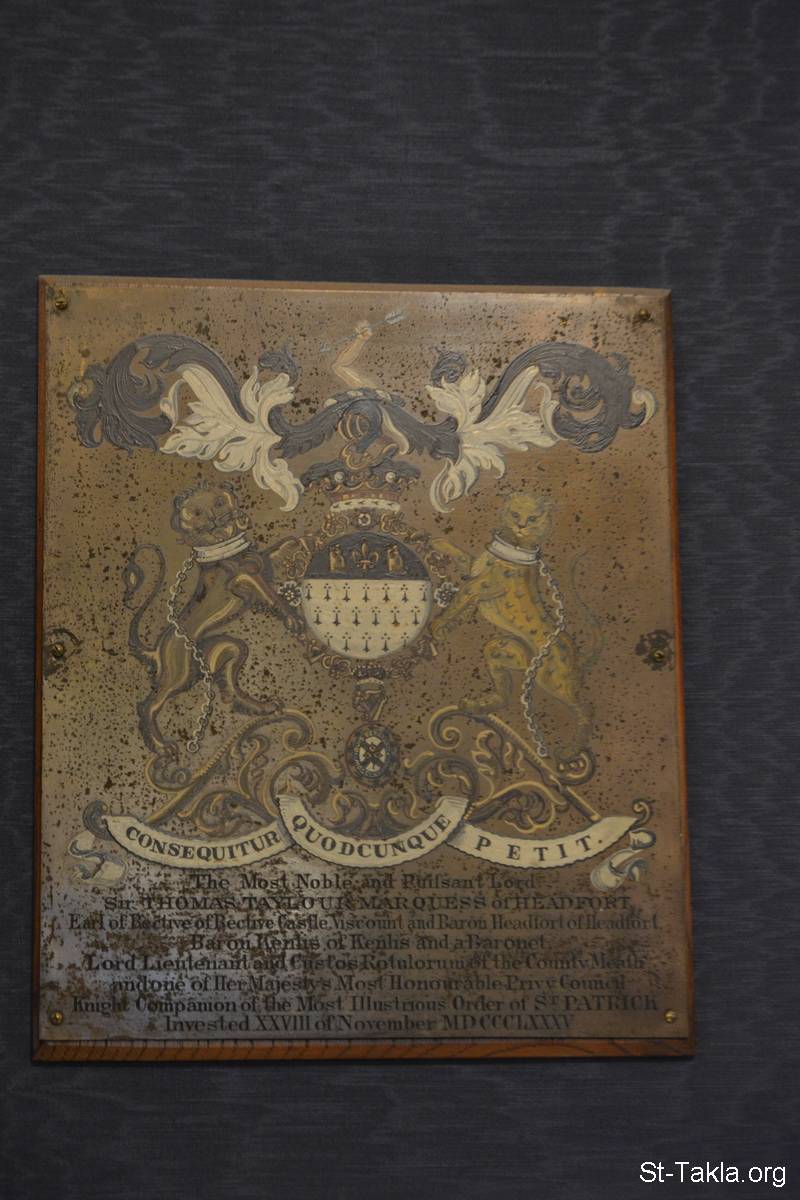 CONSEQUITUR QUODCUNQUE PETIT.
The Most Noble and Puissant Lord
Sir THOMAS TAYLOUR MARQUESS of HEADFORT,
Earl of Bective of Bective Castle, Viscount and Baron Headfort of Headfort
Baron Kenlis of Kenlis and a Baronet,
Lord Lieutenant and Custos Rotulorum of the County Meath
and one of Her Majesty's Most Honourable Privy Council
Knight Companion of the Most Illustrious Order of ST PATRICK
Invested XXVIII of November MDCCCLXXXV
St-Takla.org